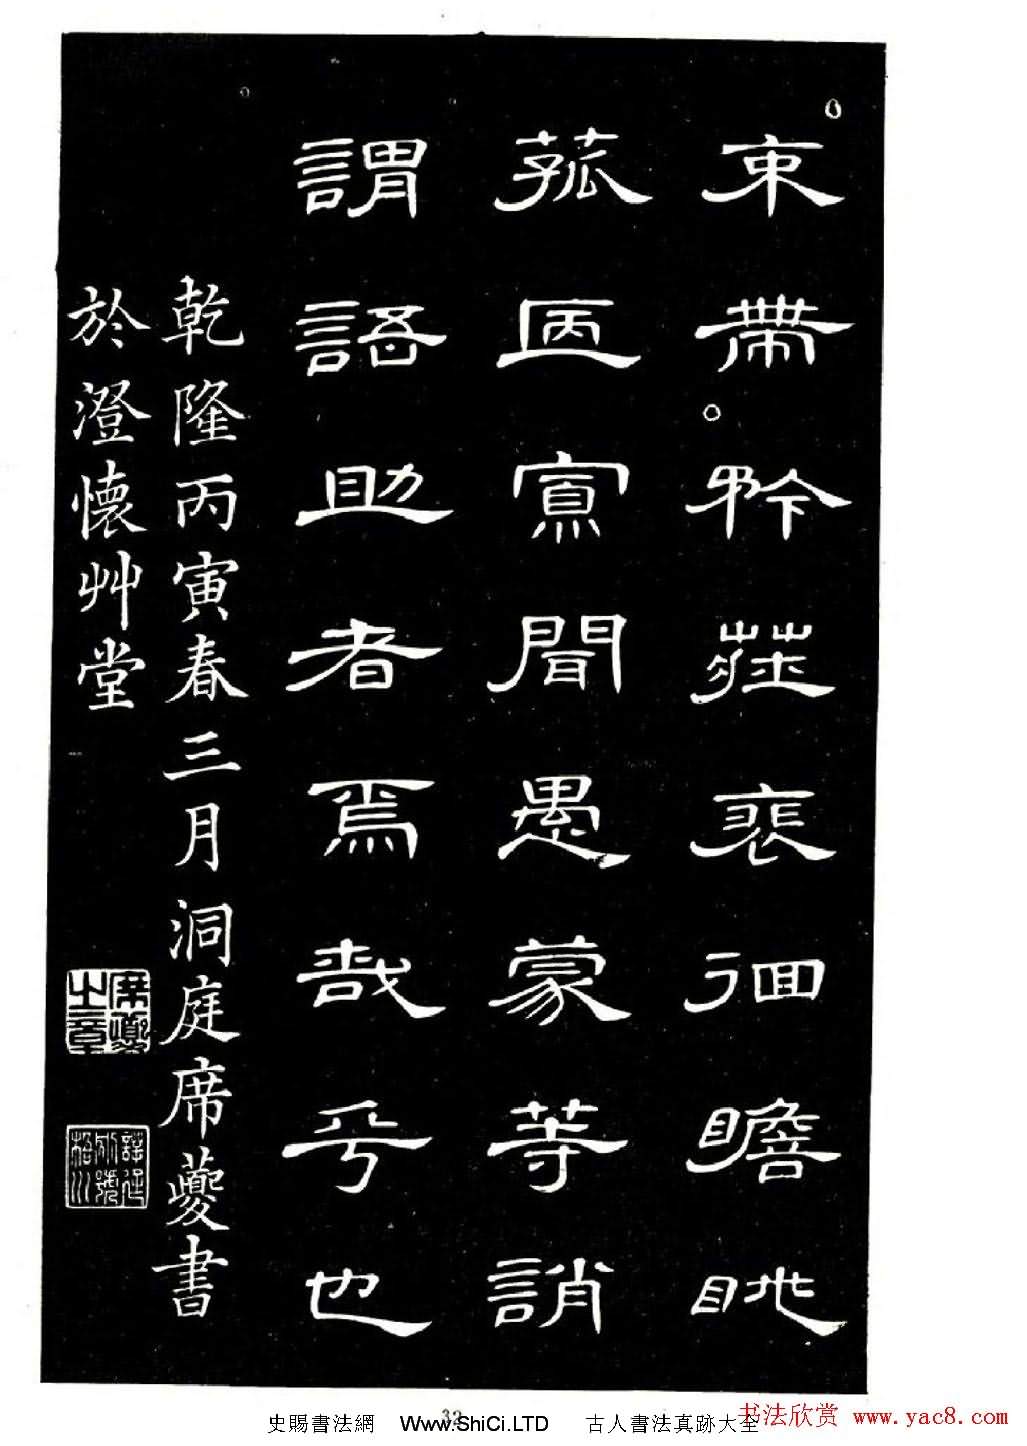 束帶矜莊裴徊瞻眺
菰陋寡聞愚蒙等誚
謂語助者焉哉乎也
乾隆丙寅春三月洞庭席夔書
於澄懷艸堂
席夔之章
32
史賜書法網 Www.ShiCi.LTD 古人書法真跡大全
书法欣赏 www.yac8.com